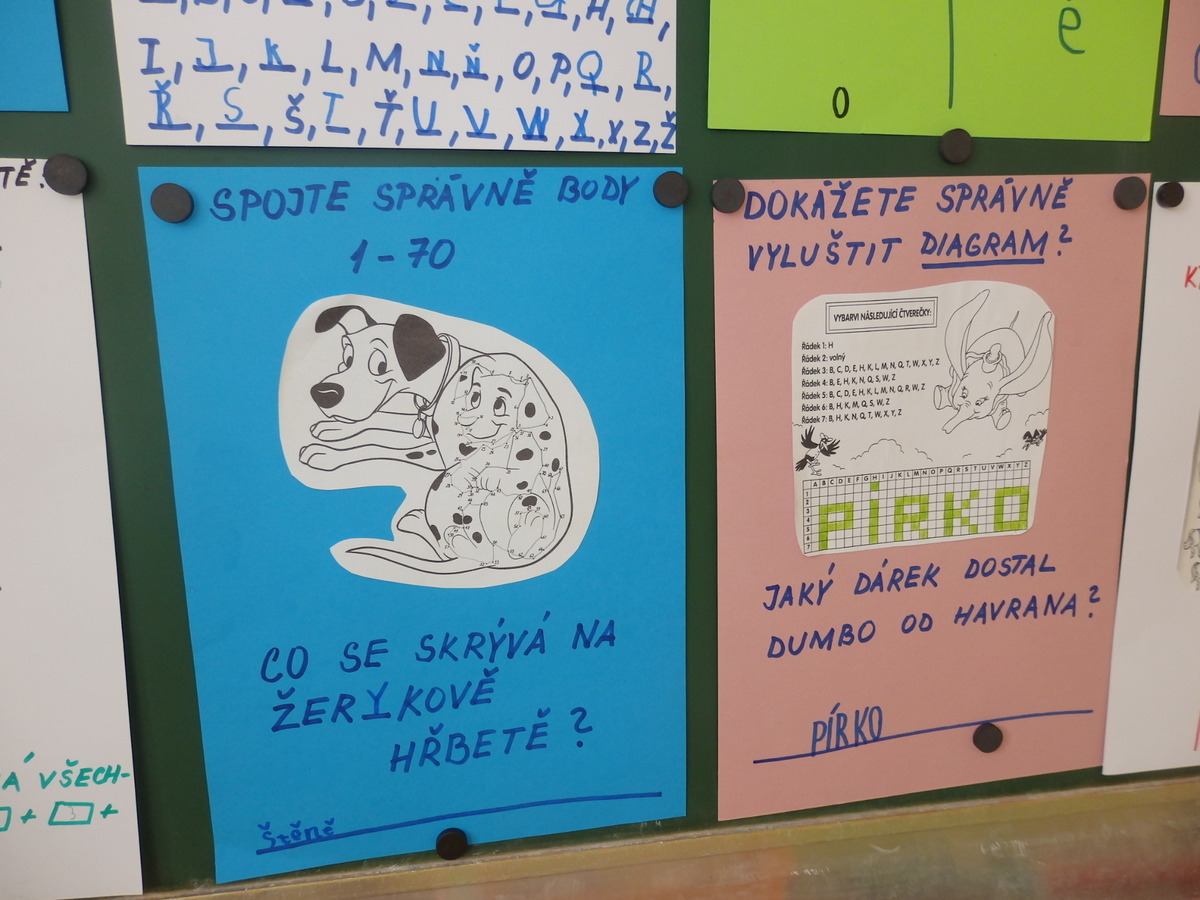 I, J, K, L, M, N, Ň, O, P, Q, R,
Ř, S, Š, T, Ť, U, V, W, X, Y, Z, Ž
o
ě
TĚ?
SPOJTE SPRÁVNĚ BODY
1-70
CO SE SKRÝVÁ NA
ŽERYKOVĚ
HŘBETĚ?
Štěně
DOKÁŽETE SPRÁVNĚ
VYLUŠTIT DIAGRAM?
VYBARVI NÁSLEDUJÍCÍ ČTVEREČKY:
Řádek 1: H
Řádek 2: volný
Řádek 3: B, C, D, E, H, K, L, M, N, Q, T, W, X, Y, Z
Řádek 4: B, E, H, K, N, Q, S, W, Z
Řádek 5: B, C, D, E, H, K, L, M, N, Q, R, W, Z
Řádek 6: B, H, K, M, Q, S, W, Z
Řádek 7: B, H, K, N, Q, T, W, X, Y, Z
A B C D E F G H I J K L M N O P Q R S T U V W X Y Z
1
2
3
4
5
6
7
PÍRKO
JAKÝ DÁREK DOSTAL
DUMBO OD HAVRANA?
PÍRKO
Á VŠECH-
+ +